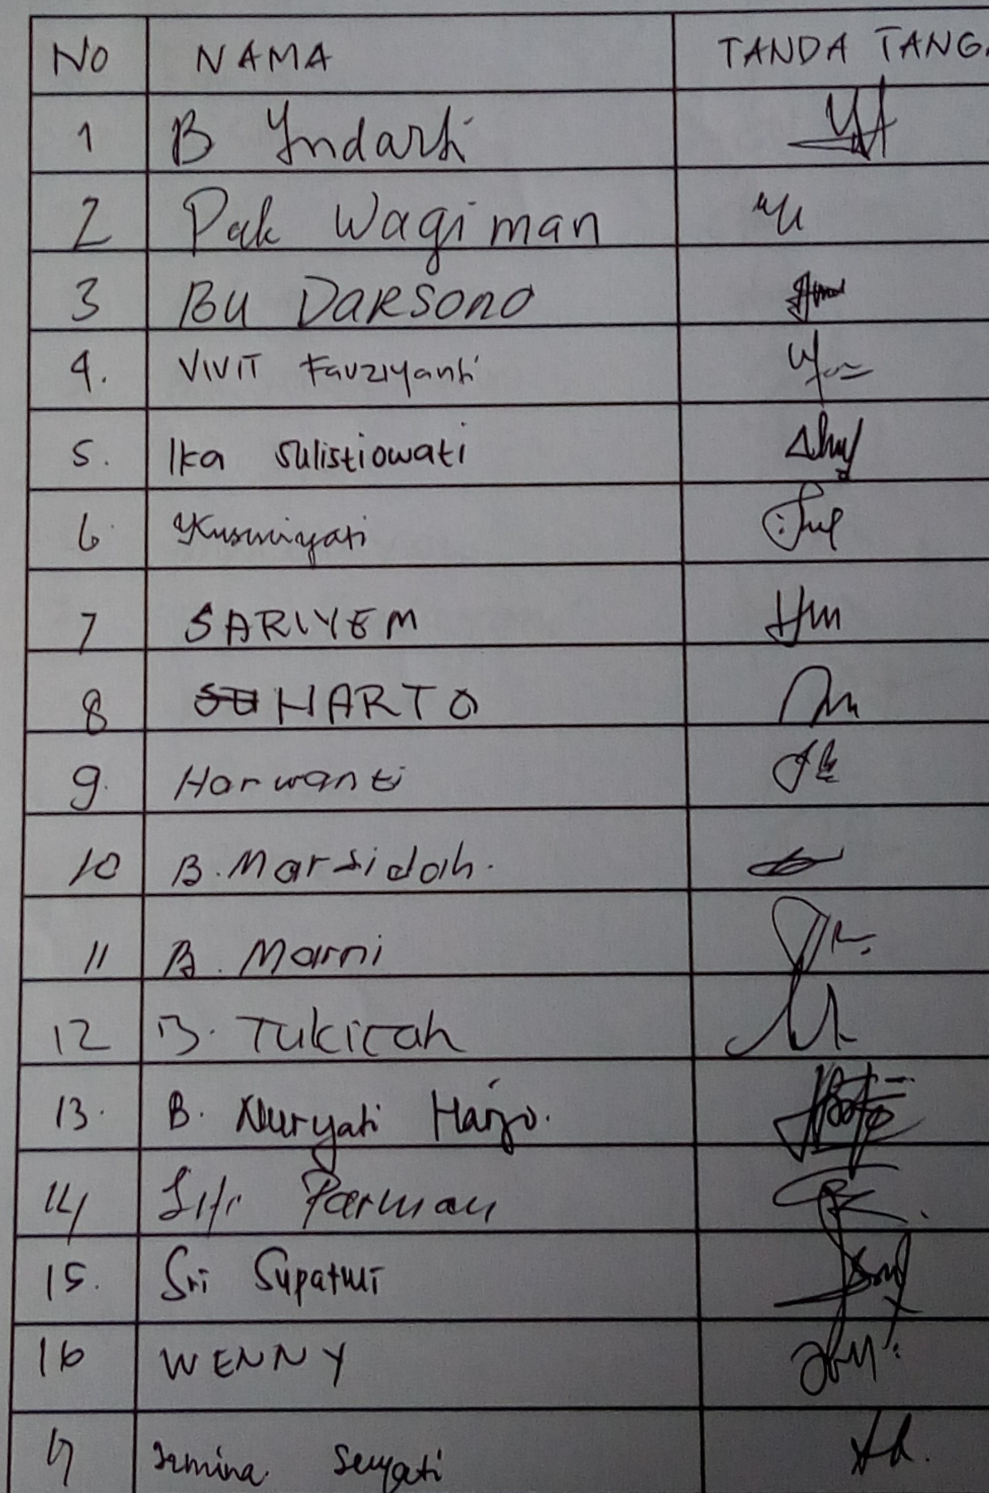 NO NAMA TANDA TANG
1 B Yndarti
2 Pak Wagiman
3 BU DARSONO
4. VIVIT Fauziyanti
5. Ika Sulistiowati
6 Kusmiyati
7 SARIYEM
8 HARTO
9. Harwanti
10 B. Marsidah.
11 B. Marni
12 B. Tukirah
13. B. Nuryati Harjo.
14 Parman
15. Sri Supatmi
16 WENNY
17